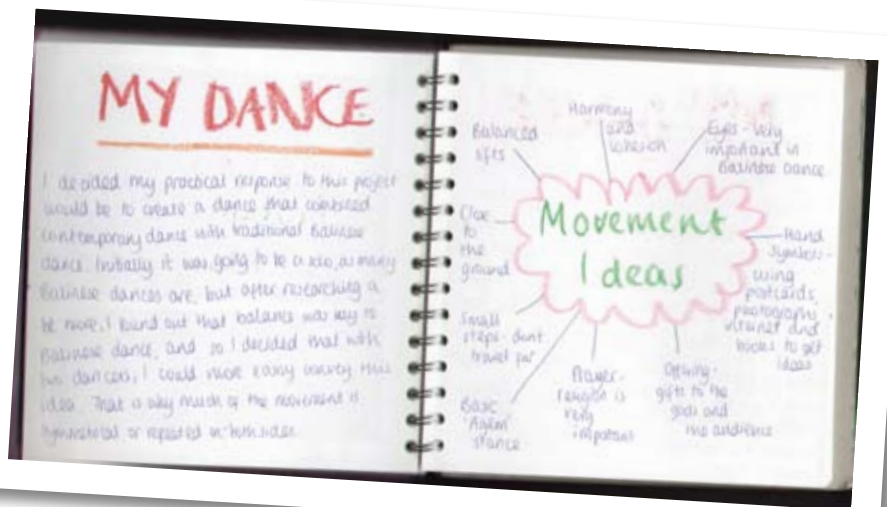 MY DANCE
I decided my practical response to this project
would be to create a dance that combined
contemporary dance with traditional Balinese
dance. Initially it was going to be a solo, as many
Balinese dances are, but after researching a
bit more, I found out that balance was key to
Balinese dance, and so I decided that with
two dancers, I could more easily convey this
idea. That is why much of the movement is
symmetrical or repeated on both sides.
Movement
Ideas
Harmony
and
cohesion
Eyes - very
important in
Balinese Dance
Hand
symbols -
using
postcards,
photographs,
internet and
books to get
ideas
Offering -
gifts to the
gods and
the audience
Prayer -
religion is
very
important
Basic
"Agem"
stance
Small
steps - dont
travel far
Close
to
the
ground
Balanced
lifts